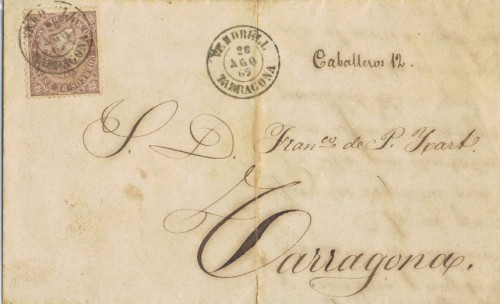 VENDRELL
26
AGO
69
TARRAGONA
Caballeros 12.
S. D. Fran.co de P. Ixart.
Tarragona.